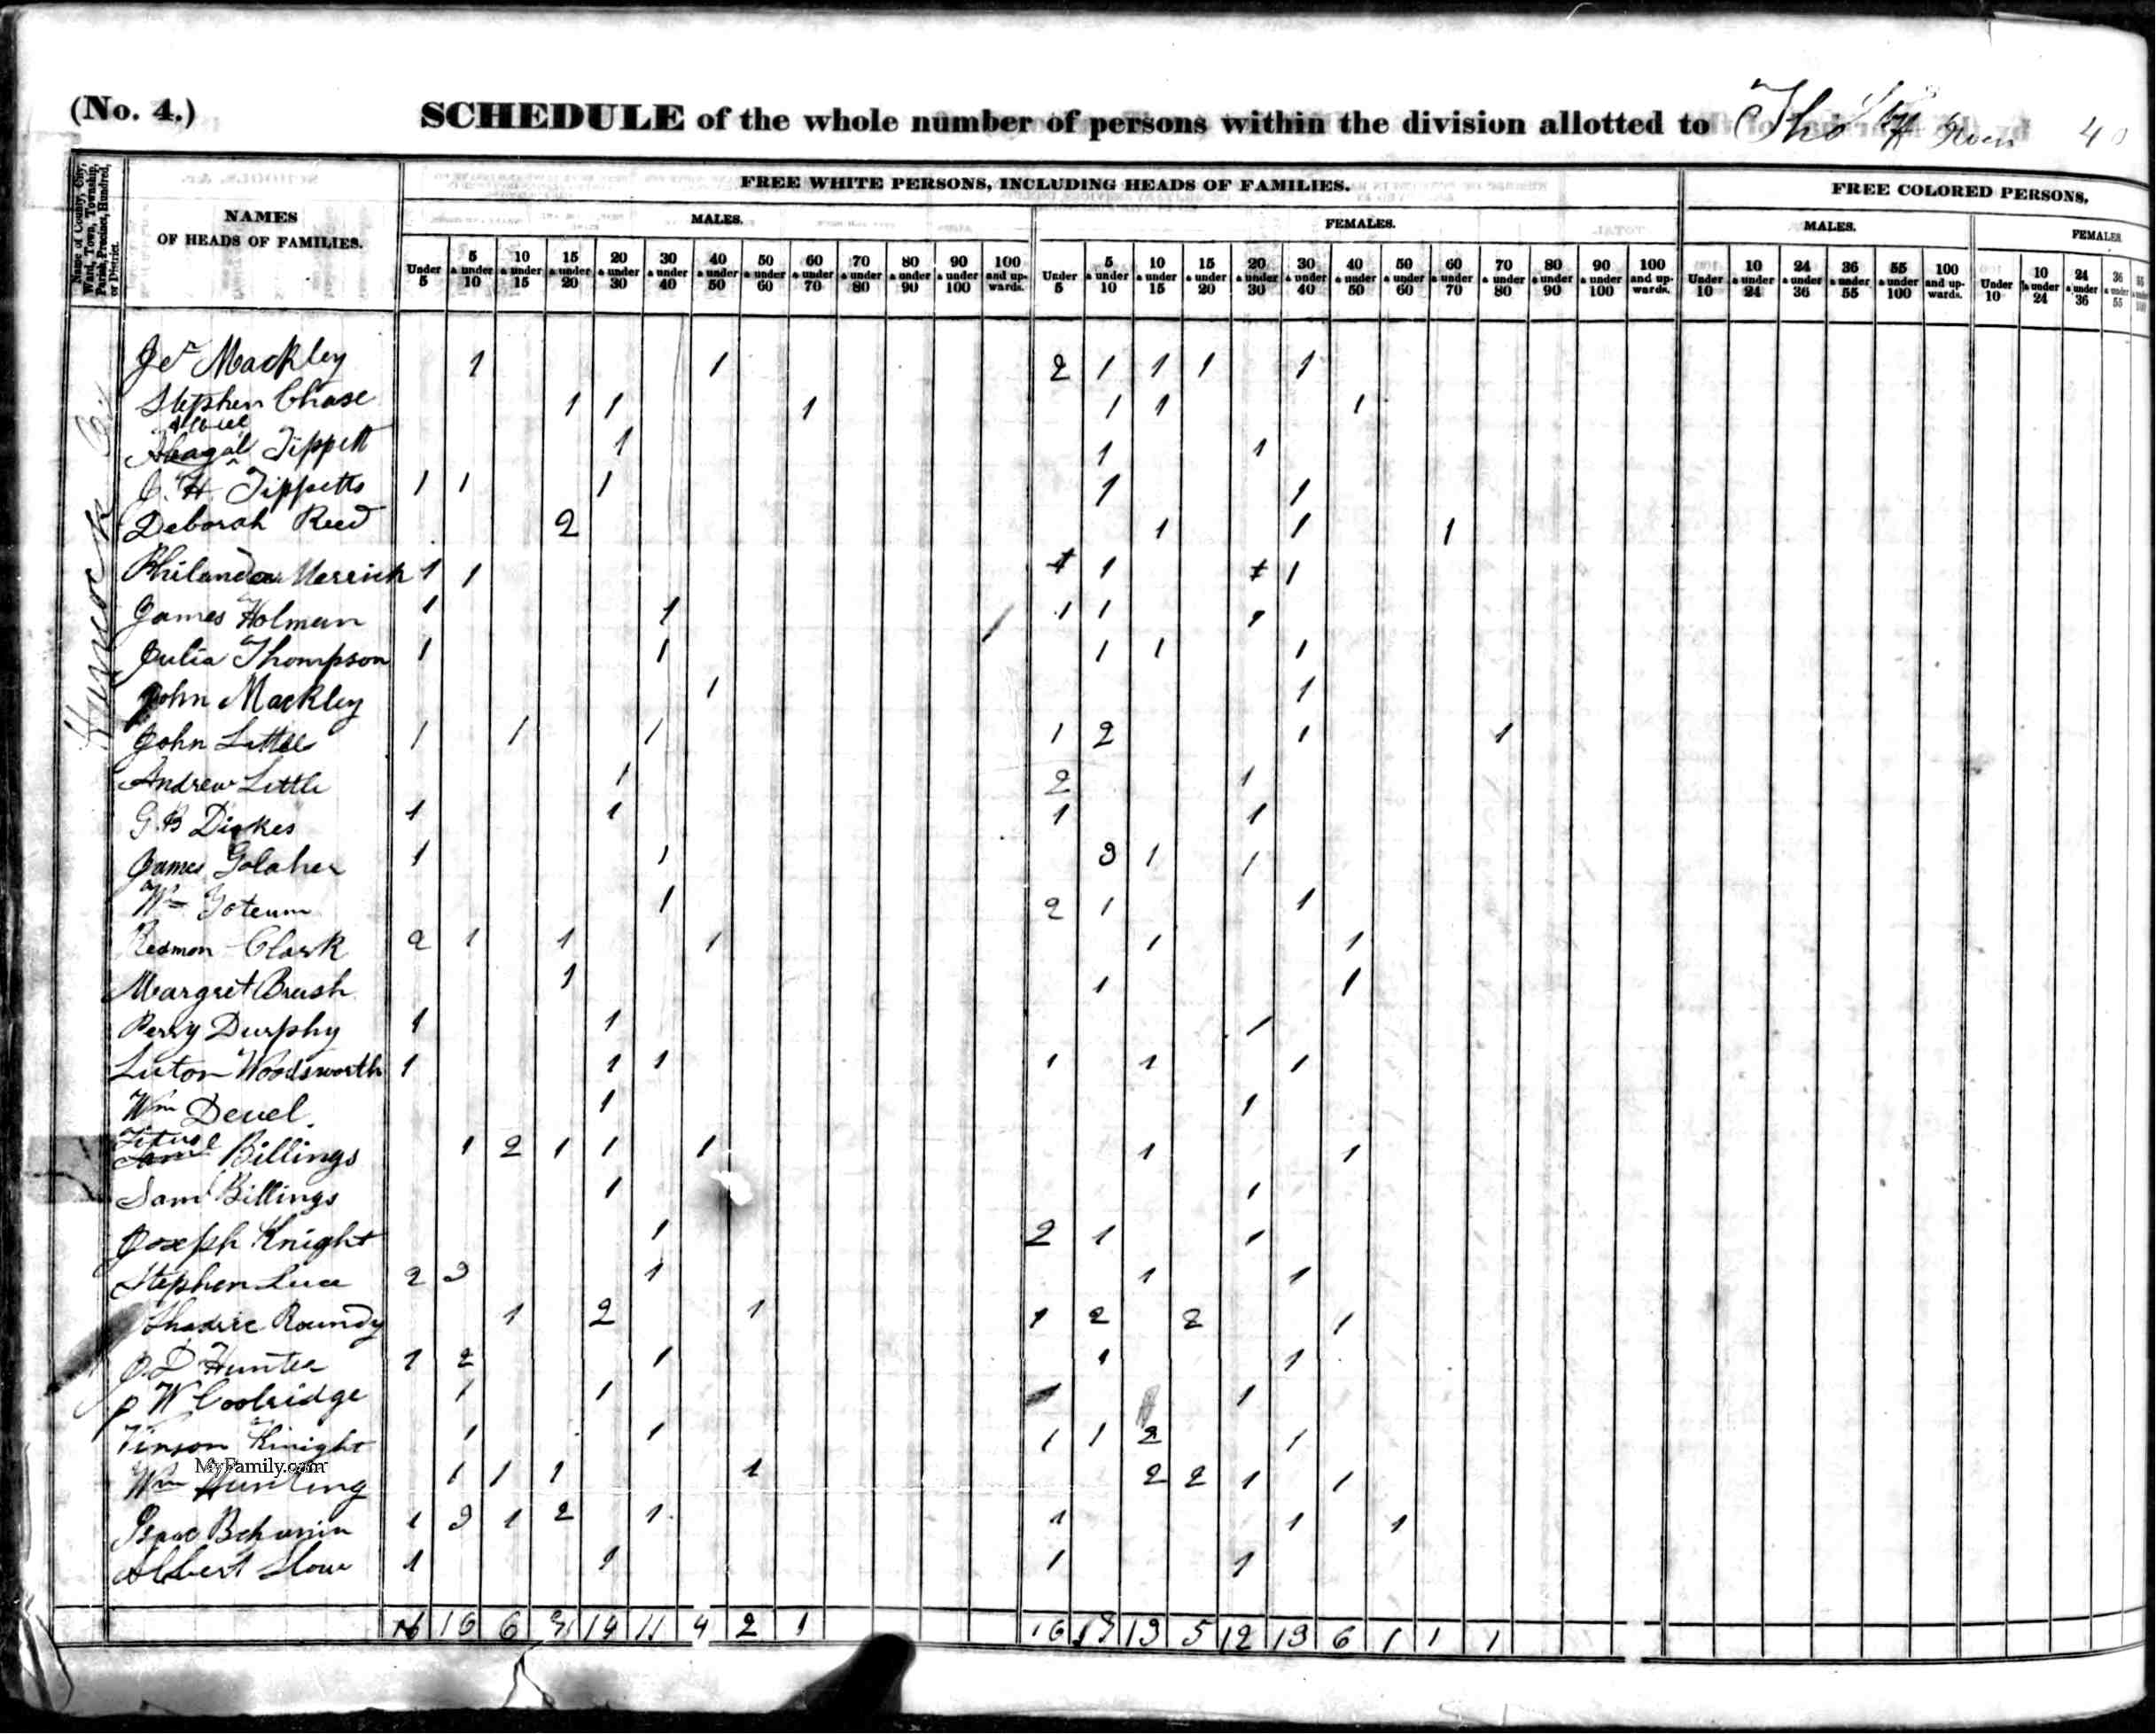 (No. 4.) SCHEDULE of the whole number of persons within the division allotted to Tho 40
Name of County, City, Ward, Town, Township, Parish, Precinct, Hundred, or District.
NAMES OF HEADS OF FAMILIES.
FREE WHITE PERSONS, INCLUDING HEADS OF FAMILIES.
FREE COLORED PERSONS,
MALES. FEMALES. MALES. FEMALES
Under 5 5 & under 10 10 & under 15 15 & under 20 20 & under 30 30 & under 40 40 & under 50 50 & under 60 60 & under 70 70 & under 80 80 & under 90 90 & under 100 100 and upwards. Under 5 5 & under 10 10 & under 15 15 & under 20 20 & under 30 30 & under 40 40 & under 50 50 & under 60 60 & under 70 70 & under 80 80 & under 90 90 & under 100 100 and upwards. Under 10 10 & under 24 24 & under 36 36 & under 55 55 & under 100 100 and upwards. Under 10 10 & under 24 24 & under 36 36 & under 55
Hancock Co
Jer Mackley 1 1 2 1 1 1 1
Stephen Chase 1 1 1 1 1 1
Tippett 1 1 1
J. H. Tippetts 1 1 1 1 1
Deborah Reed 2 1 1 1
Philander Merrick 1 1 1 1
James Holman 1 1 1 1 1
Julia Thompson 1 1 1 1 1
John Mackley 1 1
John Little 1 1 1 1 2 1 1
Andrew Little 1 2 1
G. B Dickes 1 1 1 1
James Golaher 1 1 3 1 1
Wm 1 2 1 1
Redmon Clark 2 1 1 1 1 1
Margret Brush 1 1 1
Perry Durphy 1 1 1
Luton Woodsworth 1 1 1 1 1 1
Wm Deuel 1 1
Titus Billings 1 2 1 1 1 1 1
Saml Billings 1 1
Joseph Knight 1 2 1 1
Stephen Luce 2 3 1 1 1
Shadric Roundy 1 2 1 1 2 2 1
J. D Hunter 1 2 1 1 1
J W Coolridge 1 1 1 1
Vinson Knight 1 1 1 1 2 1
Wm Hunting 1 1 1 1 2 2 1 1
MyFamily.com
Isaac Behunin 1 3 1 2 1 1 1 1
Albert Slow 1 1 1 1
16 16 6 9 14 11 4 2 1 16 17 13 5 12 13 6 1 1 1